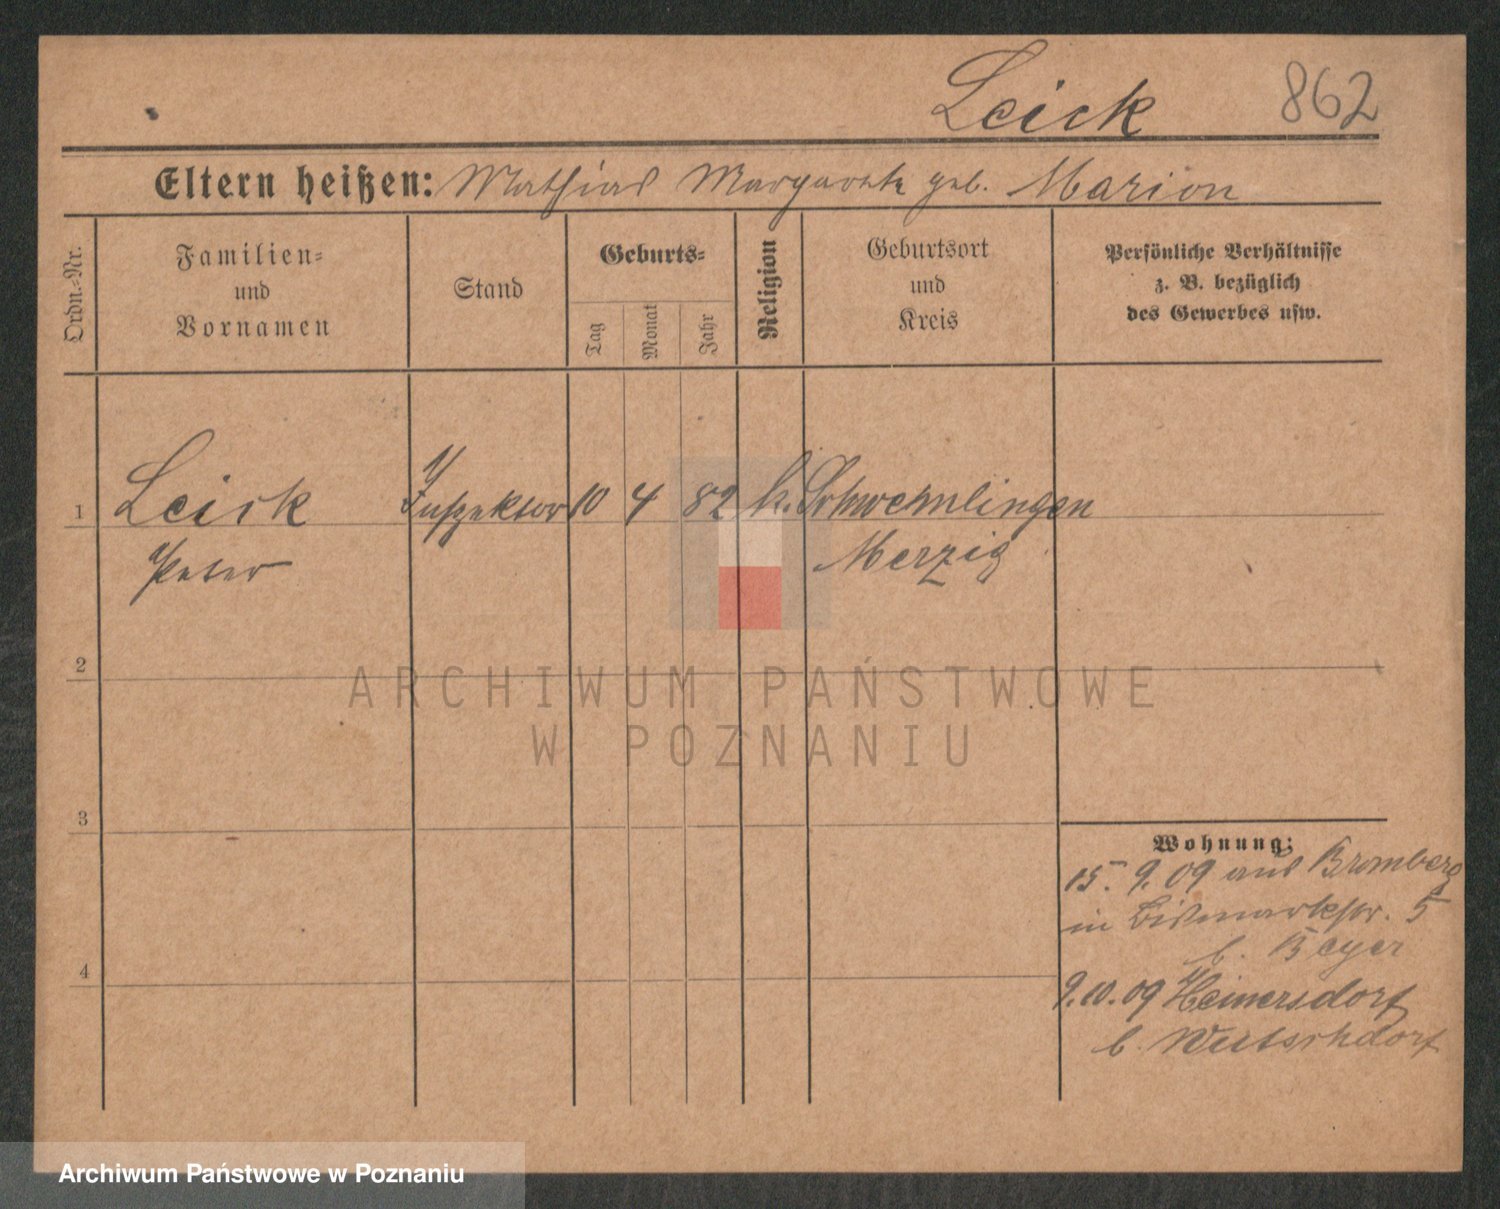 Leick 862
Eltern heißen: Mathias Margarete geb. Marion
Ordn.-Nr.
Familien-
und
Vornamen
Stand
Geburts-
Tag
Monat
Jahr
Religion
Geburtsort
und
Kreis
Persönliche Verhältnisse
z. B. bezüglich
des Gewerbes usw.
1 Leick Inspektor 10 4 82 k. Schwemlingen
Peter Merzig
2
3
4
Wohnung:
15. 9. 09 aus Bromberg
in Bismarckstr. 5
b. Beyer
9.10.09 Heinersdorf
b.
ARCHIWUM PAŃSTWOWE
W POZNANIU
Archiwum Państwowe w Poznaniu